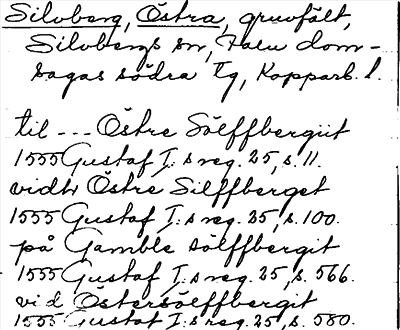 Silvberg, Östra, gruvfält,
Silvbergs sn, Falu dom-
sagas södra tg, Kopparb. l.
til --- Östre Sölffbergiit
1555 Gustaf I:s reg. 25, s. 11.
vidtr Östre Silffberget
1555 Gustaf I:s reg. 25, s. 100.
på Gamble sölffbergit
1555 Gustaf I:s reg. 25, s. 566.
vid Östersölffbergit
1555 Gustaf I:s reg. 25, s. 580.